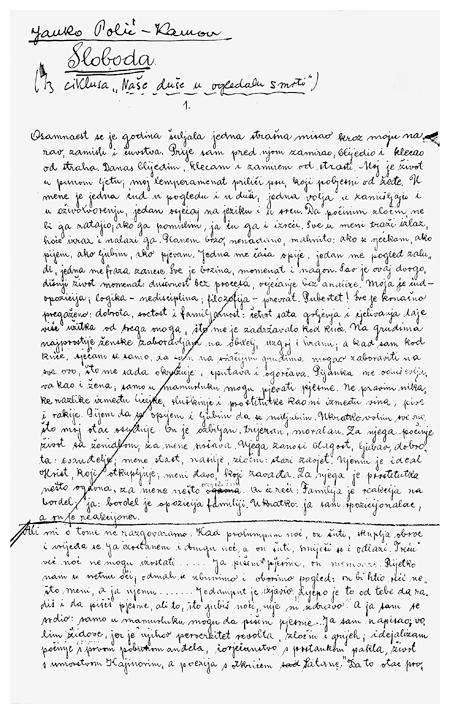 Janko Polić-Kamov
Sloboda
(Iz ciklusa „Naše duše u ogledalu smrti")
1.
Osamnaest se je godina šuljala jedna strašna misao kroz moju na
rav, zamisli i čuvstva. Prije sam pred njom zamirao, blijedio i klecao
od straha. Danas blijedim, klecam i zamirem od strasti. Moj je život
u punom ljetu; moj temperamenat priliči psu, koji pobjesni od žeđe. U
mene je jedna ćud u pogledu i u duši, jedna volja u zamišljaju i
u oživotvorenju, jedan osjećaj na jeziku i u srcu. Da počinim zločin, ne
bi ga zatajio; ako ga pomislim, ja ću ga i izreći. Sve u meni traži izlaz,
hoće izraz i nalazi ga. Planem brzo, nenadano, mahnito; ako
pijem, ako ljubim, ako pjevam. Jedna me čaša opije, jedan me pogled zalu
di, jedna me fraza zanese. Sve je brzina, momenat i nagon. Sav je ovaj dvogo
dišnji život momenat: duševnost bez procesa, osjećanje bez analize. Moja je ćud -
opozicija; logika - nedisciplina; filozofija - prevrat. Pubertet! Sve je konačno
pregaženo: dobrota, svetost i familijarnost:
više užitka od svega moga, što me je zadržavalo kod kuće. Na grudima
najprostije ženske zaboravljam na obitelj, uzgoj i hranu; a kad sam kod
kuće, sjećam se samo, da sam na sestrinim grudima mogao zaboraviti na
sve ovo, što me sada okružuje, sputava i ogorčava. Pijanka me
va kao i žena; samo u mamurluku mogu pjevati pjesme. Ne pravim nika
ke razlike između kućnice, sluškinje i prostitutke kao ni između vina, pive
i rakije. Pijem da se opijem i ljubim da se naljubim. Ukratko: volim sve ono,
što moj otac osuđuje bu je ozbiljan, trijezan, moralan. Za njega počinje
život sa ženidbom; za mene prestaje. Njega zanosi blagost, ljubav, dobro
ta: evanđelje; mene strast, nasilje, zločin: stari zavjet. Njemu je ideal
Hrist, koji otkupljuje; meni đavo, koji zavađa. Za njega je prostitutka
nešto ogavna, za mene nešto On će reći: Familija je reakcija na
bordel; ja: bordel je opozicija familiji. Ukratko: ja sam opozicijonalac,
a on je reakcijoner.
Ali mi o tome ne razgovaramo. Kad probunim noć, on šuti, skuplja obrve
i uvrijeđa se. Ja izostanem i drugu noć, a on šuti, smiješi se i odlazi. Treću
već noć ne mogu izostati...... Ja pišem pjesme, on memoare. Rijetko
nam se sretnu oči; odmah se zbunimo i oborimo poglede; on bi htio reći ne-
što meni, a ja njemu....... Jedamput je izjavio: Lijepo je to od tebe da ra-
diš i da pišeš pjesme, ali to, što gubiš noći, nije ni zdravo. A ja sam se
srdio: samo u mamurluku mogu da pišem pjesme... Ja sam napisao, vo
lim Židove, jer je njihov perverzitet revolta, zločin i grijeh; idejalizam
počinje s prvom pobunom anđela, čovječanstvo s postankom pakla, život
s umorstvom Kajinovim, a poezija s otkrićem Satane." Da to otac pro-